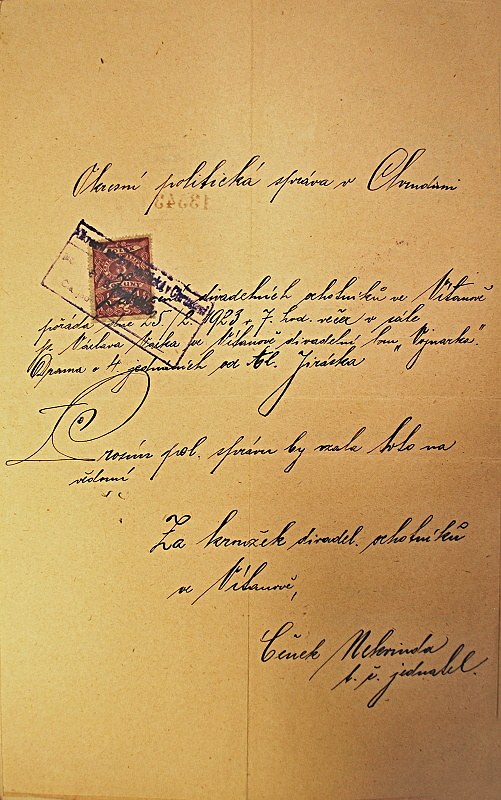 Okresní politická správa v Chrudimi
13343
divadelních ochotníků ve Vítanově
pořádá dne 25./2. 1923 v 7. hod. večer v sále
p. Václava ve Vítanově divadelní hru „Vojnarka".
Drama o 4 jednáních od Al. Jiráska
Prosím pol. správu by vzala toto na
vědomí
Za kroužek divadel. ochotníků
ve Vítanově,
Čeněk Nekvinda
t. č. jednatel.